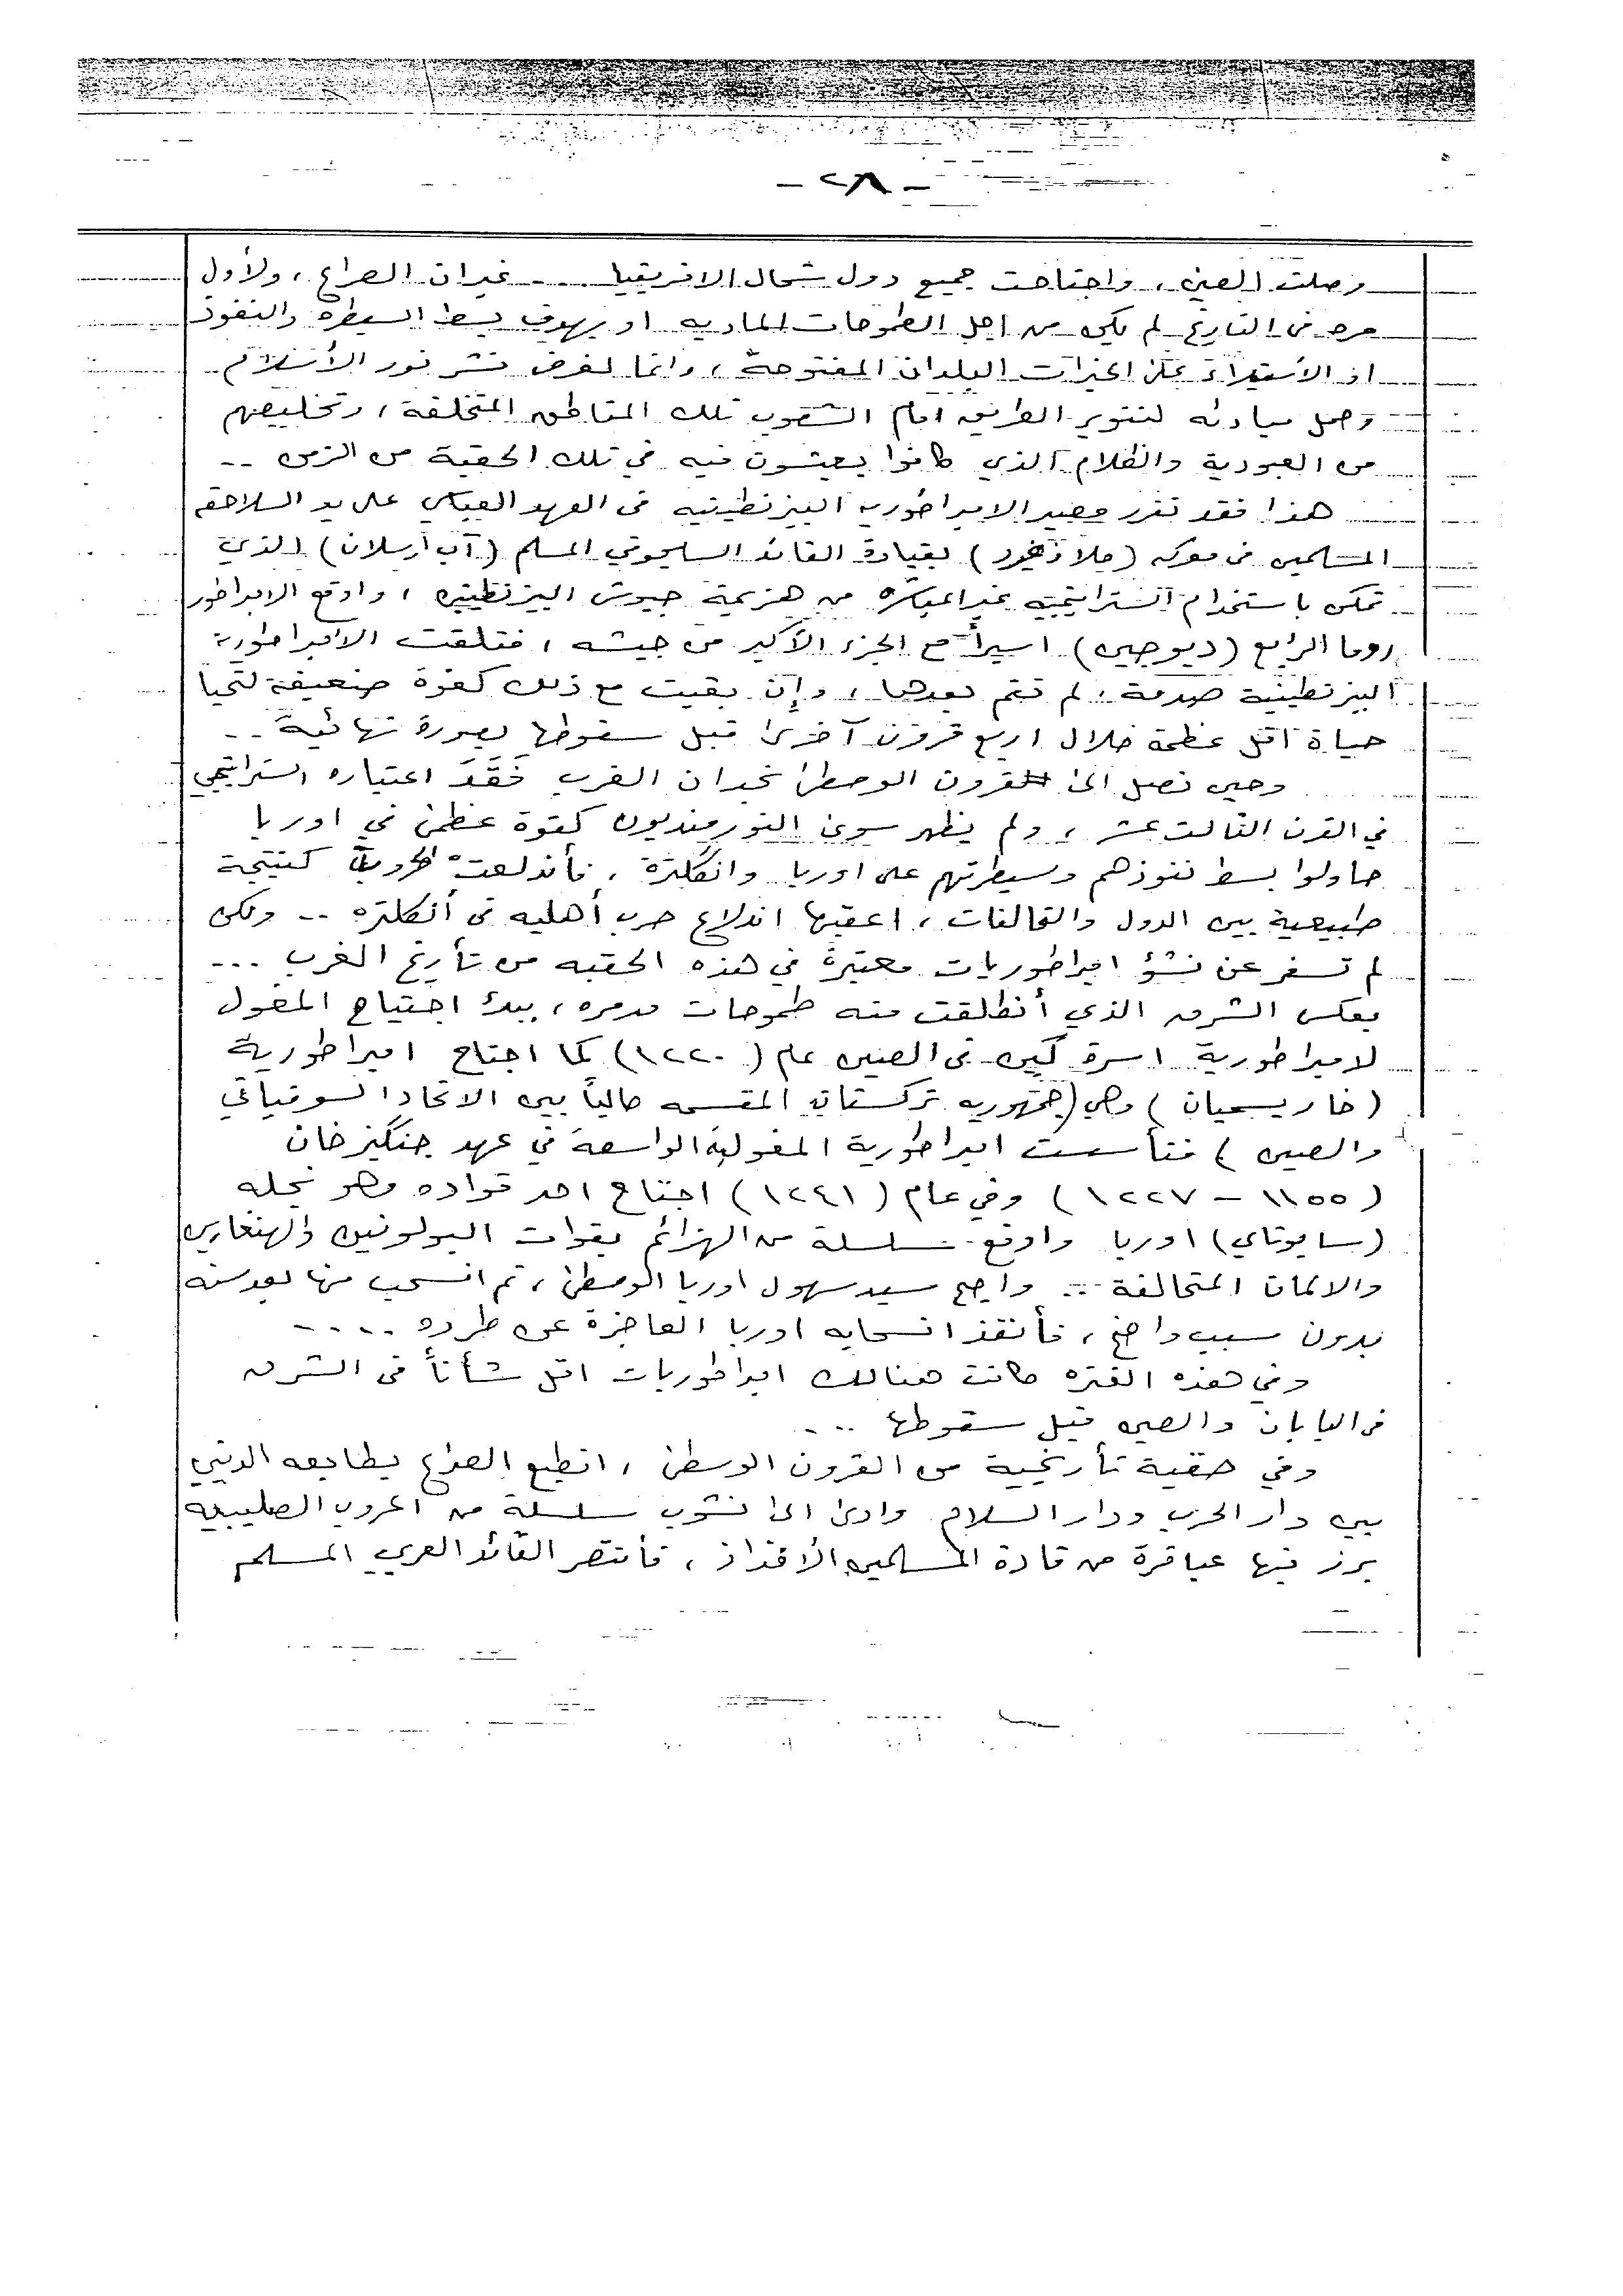 - ٢٨ -
وصلت الصين ، واجتاحت جميع دول شمال الافريقيا ... غيران الصراع ، ولأول
مره في التاريخ لم يكن من اجل الطموحات الماديه او يهدف بسط السيطره والنفوذ
او الأستيلاء على خيرات البلدان المفتوحة ، وانما لغرض نشر نور الأسلام
وحمل مبادئه لتنوير الطريق امام الشعوب تلك المناطق المتخلفة ، وتخليصهم
من العبودية والظلام الذي كانوا يعيشون فيه في تلك الحقبة من الزمن ..
هذا فقد تقرر مصير الامبراطوريه البيزنطينيه في العهد العباسي على يد السلاجقه
المسلمين في معركه (ملاذخرد) بقيادة القائد السلجوقي المسلم (آب أرسلان) الذي
تمكن باستخدام استراتيجيه غير المباشره من هزيمة جيوش البيزنطينيه ، واوقع الامبراطور
روما الرابع (ديوجين) اسيراً مع الجزء الأكبر من جيشه ، فتلقت الأمبراطورية
البيزنطينية صدمة ، لم تقم بعدها ، وإن بقيت مع ذلك كقوة ضعيفة لتحيا
حياة اقل عظمة خلال اربع قرون آخرى قبل سقوطها بصورة نهائية ..
وحين نصل الى القرون الوسطى نجد ان الغرب فَقَدَ اعتباره استراتيجي
في القرن الثالث عشر ، ولم يظهر سوى النورمنديون كقوة عظمى في اوربا
حاولوا بسط نفوذهم وسيطرتهم على اوربا وانكلترة ، فأندلعت الحروب كنتيجة
طبيعية بين الدول والتحالفات ، اعقبها اندلاع حرب أهليه في أنكلتره .. ولكن
لم تسفر عن نشؤ امبراطوريات معتبرة في هذه الحقبه من تأريخ الغرب ...
بعكس الشرق الذي أنطلقت منه طموحات مدمره ، ببدء اجتياح المغول
لامبراطورية اسرة كين في الصين عام (١٢٢٠) كما اجتاح امبراطورية
(خاريسميان) وهي (جمهوريه تركستان المقسمه حالياً بين الاتحاد السوفياتي
والصين) فتأسست امبراطورية المغولية الواسعة في عهد جنكيز خان
(١١٥٥ - ١٢٢٧) وفي عام (١٢٤١) اجتاح احد قواده وهو نجله
(سايوتاي) اوربا واوقع سلسلة من الهزائم بقوات البولونيين والهنغارين
والالمان المتحالفة .. واصبح سيد سهول اوربا الوسطى ، ثم انسحب منها بعد سنه
بدون سبب واضح ، فأنقذ انسحابه اوربا العاجزة عن طرده ....
وفي هذه الفتره كانت هنالك امبراطوريات اقل شأناً في الشرق
في اليابان والصين قبل سقوطها ...
وفي حقبة تأريخية من القرون الوسطى ، انطبع الصراع بطابعه الديني
بين دار الحرب ودار السلام وادى الى نشوب سلسلة من الحروب الصليبيه
برز فيها عباقرة من قادة المسلمين الأفذاذ ، فأنتصر القائد العربي المسلم